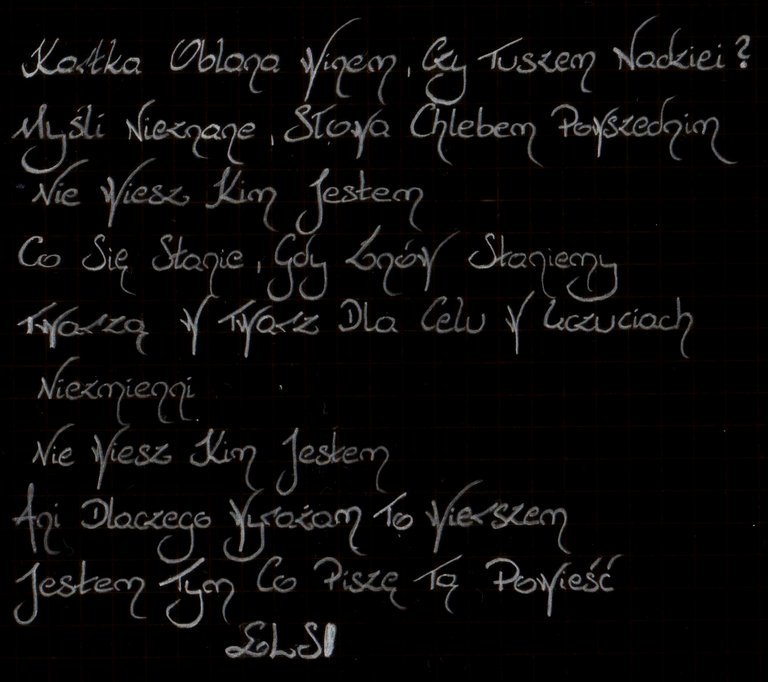 Kartka Oblana Winem, Czy Tuszem Nadziei?
Myśli Nieznane, Słowa Chlebem Powszednim
Nie Wiesz Kim Jestem
Co Się Stanie, Gdy Znów Staniemy
Twarzą W Twarz Dla Celu W Uczuciach
Niezmienni
Nie Wiesz Kim Jestem
Ani Dlaczego Wyrażam To Wierszem
Jestem Tym Co Piszę Tą Powieść